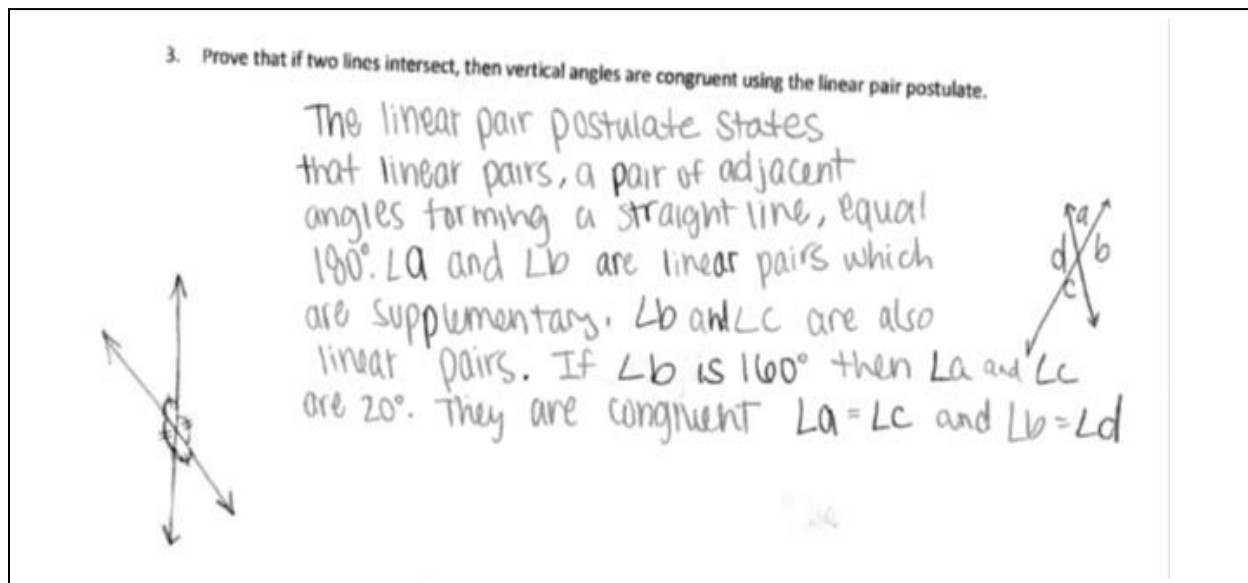 3. Prove that if two lines intersect, then vertical angles are congruent using the linear pair postulate.
The linear pair postulate states
that linear pairs, a pair of adjacent
angles forming a straight line, equal
180°. ∠a and ∠b are linear pairs which
are supplementary. ∠b and ∠c are also
linear pairs. If ∠b is 160° then ∠a and ∠c
are 20°. They are congruent ∠a = ∠c and ∠b = ∠d
a
d b
c